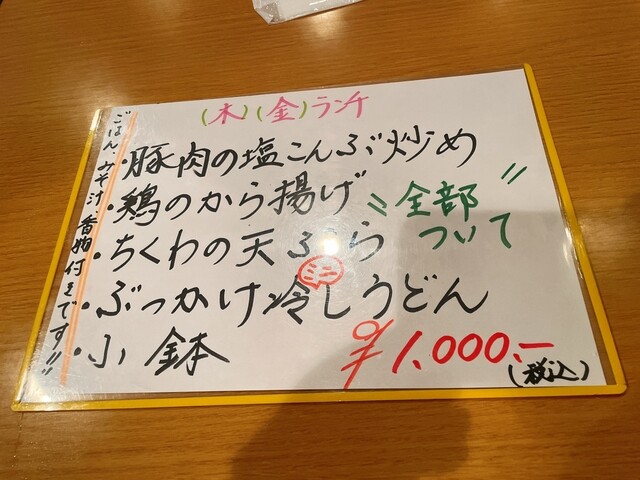 (木)(金)ランチ
・豚肉の塩こんぶ炒め
・鶏のから揚げ
・ちくわの天ぷら
・ぶっかけ冷しうどん
ミニ
・小鉢
〝全部〃
ついて
¥1,000.-
(税込)
ごはん、みそ汁、香物付きです!!